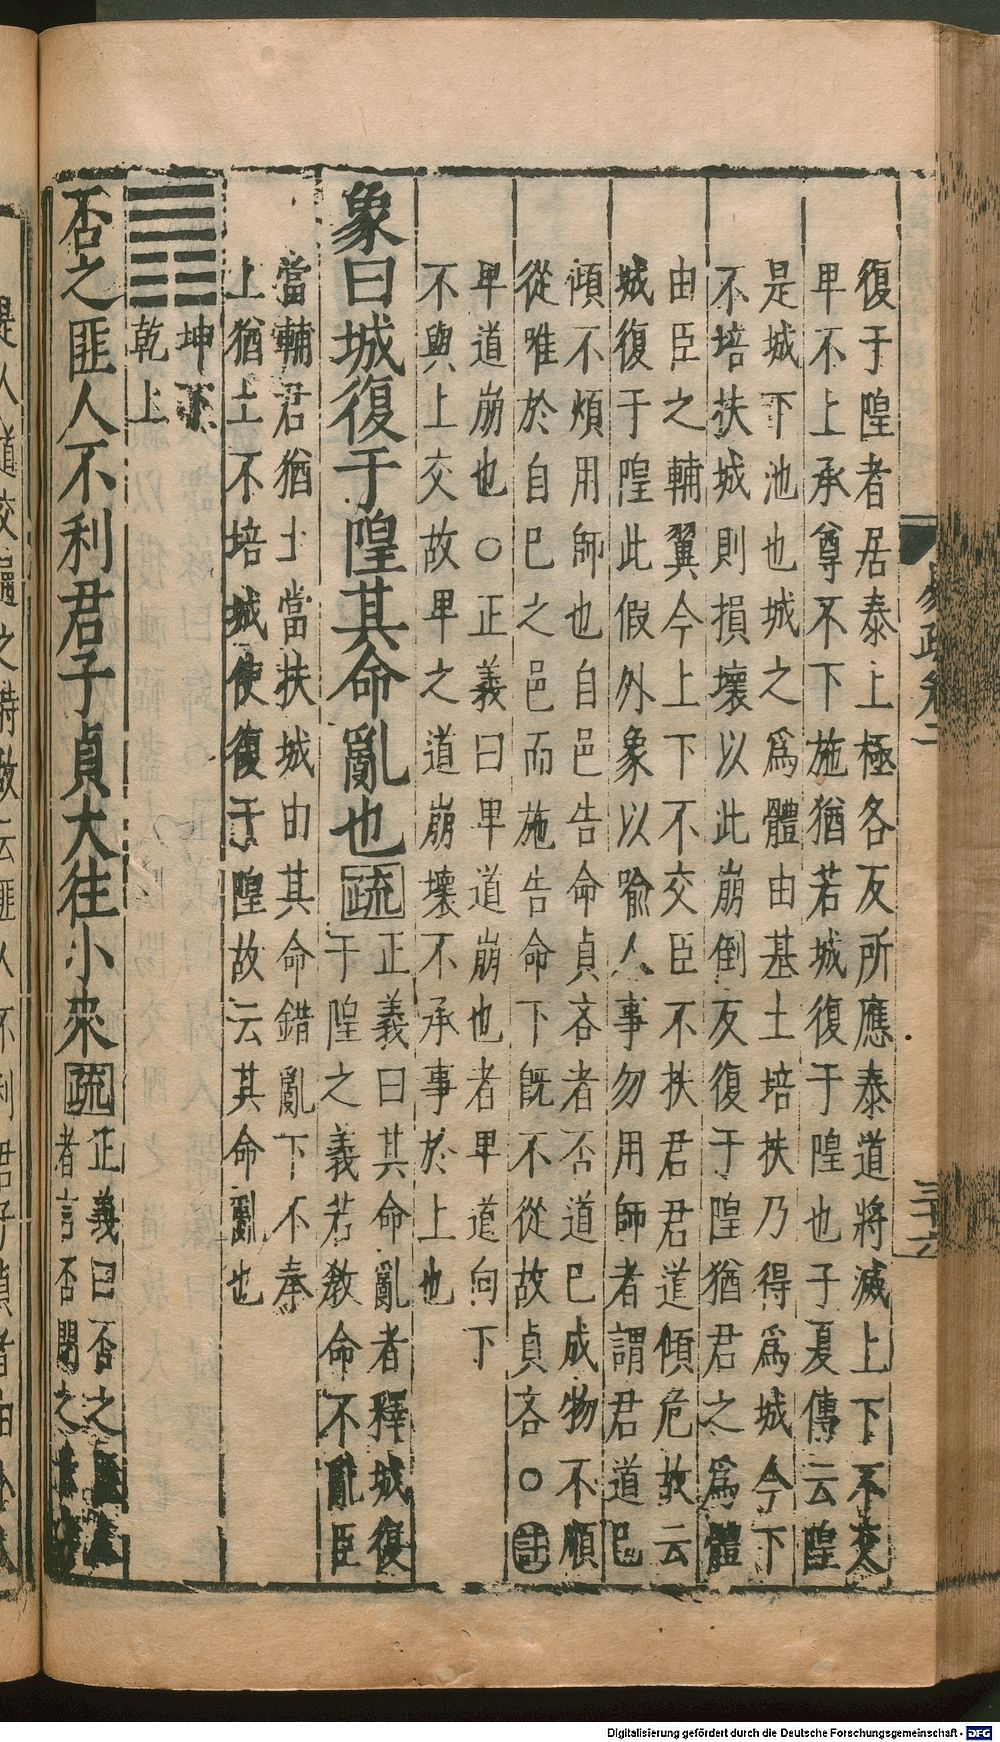 易疏卷二
三十六
復于隍者居泰上極各反所應泰道將滅上下不交
卑不上承尊不下施猶若城復于隍也子夏傳云隍
是城下池也城之爲體由基土培扶乃得爲城今下
不培扶城則損壞以此崩倒反復于隍猶君之爲體
由臣之輔翼今上下不交臣不扶君君道傾危故云
城復于隍此假外象以喻人事勿用師者謂君道已
傾不煩用師也自邑告命貞吝者否道已成物不順
從唯於自己之邑而施告命下旣不從故貞吝○註
卑道崩也○正義曰卑道崩也者卑道向下
不與上交故卑之道崩壞不承事於上也
象曰城復于隍其命亂也疏
正義曰其命亂者釋城復
于隍之義若敎命不亂臣
當輔君猶土當扶城由其命錯亂下不奉
上猶土不培城使復于隍故云其命亂也
䷋
坤下
乾上
否之匪人不利君子貞大往小來疏
正義曰否之
者言否閉之
Digitalisierung gefördert durch die Deutsche Forschungsgemeinschaft - DFG